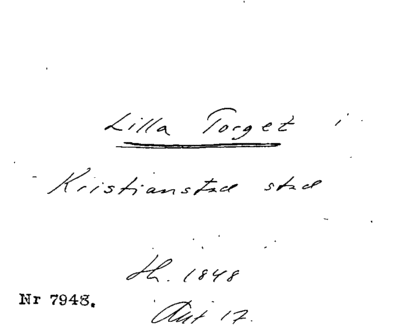 Lilla Torget i
Kristianstad stad
th. 1848
Nr 7948.
Akt 17.